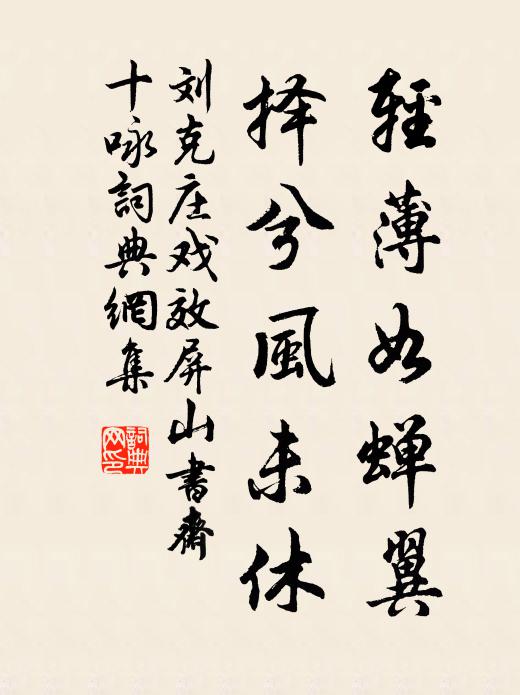 輕薄如蝉翼
择兮風未休
刘克庄戏效屏山書齋
十咏詞典網集
詞典网印